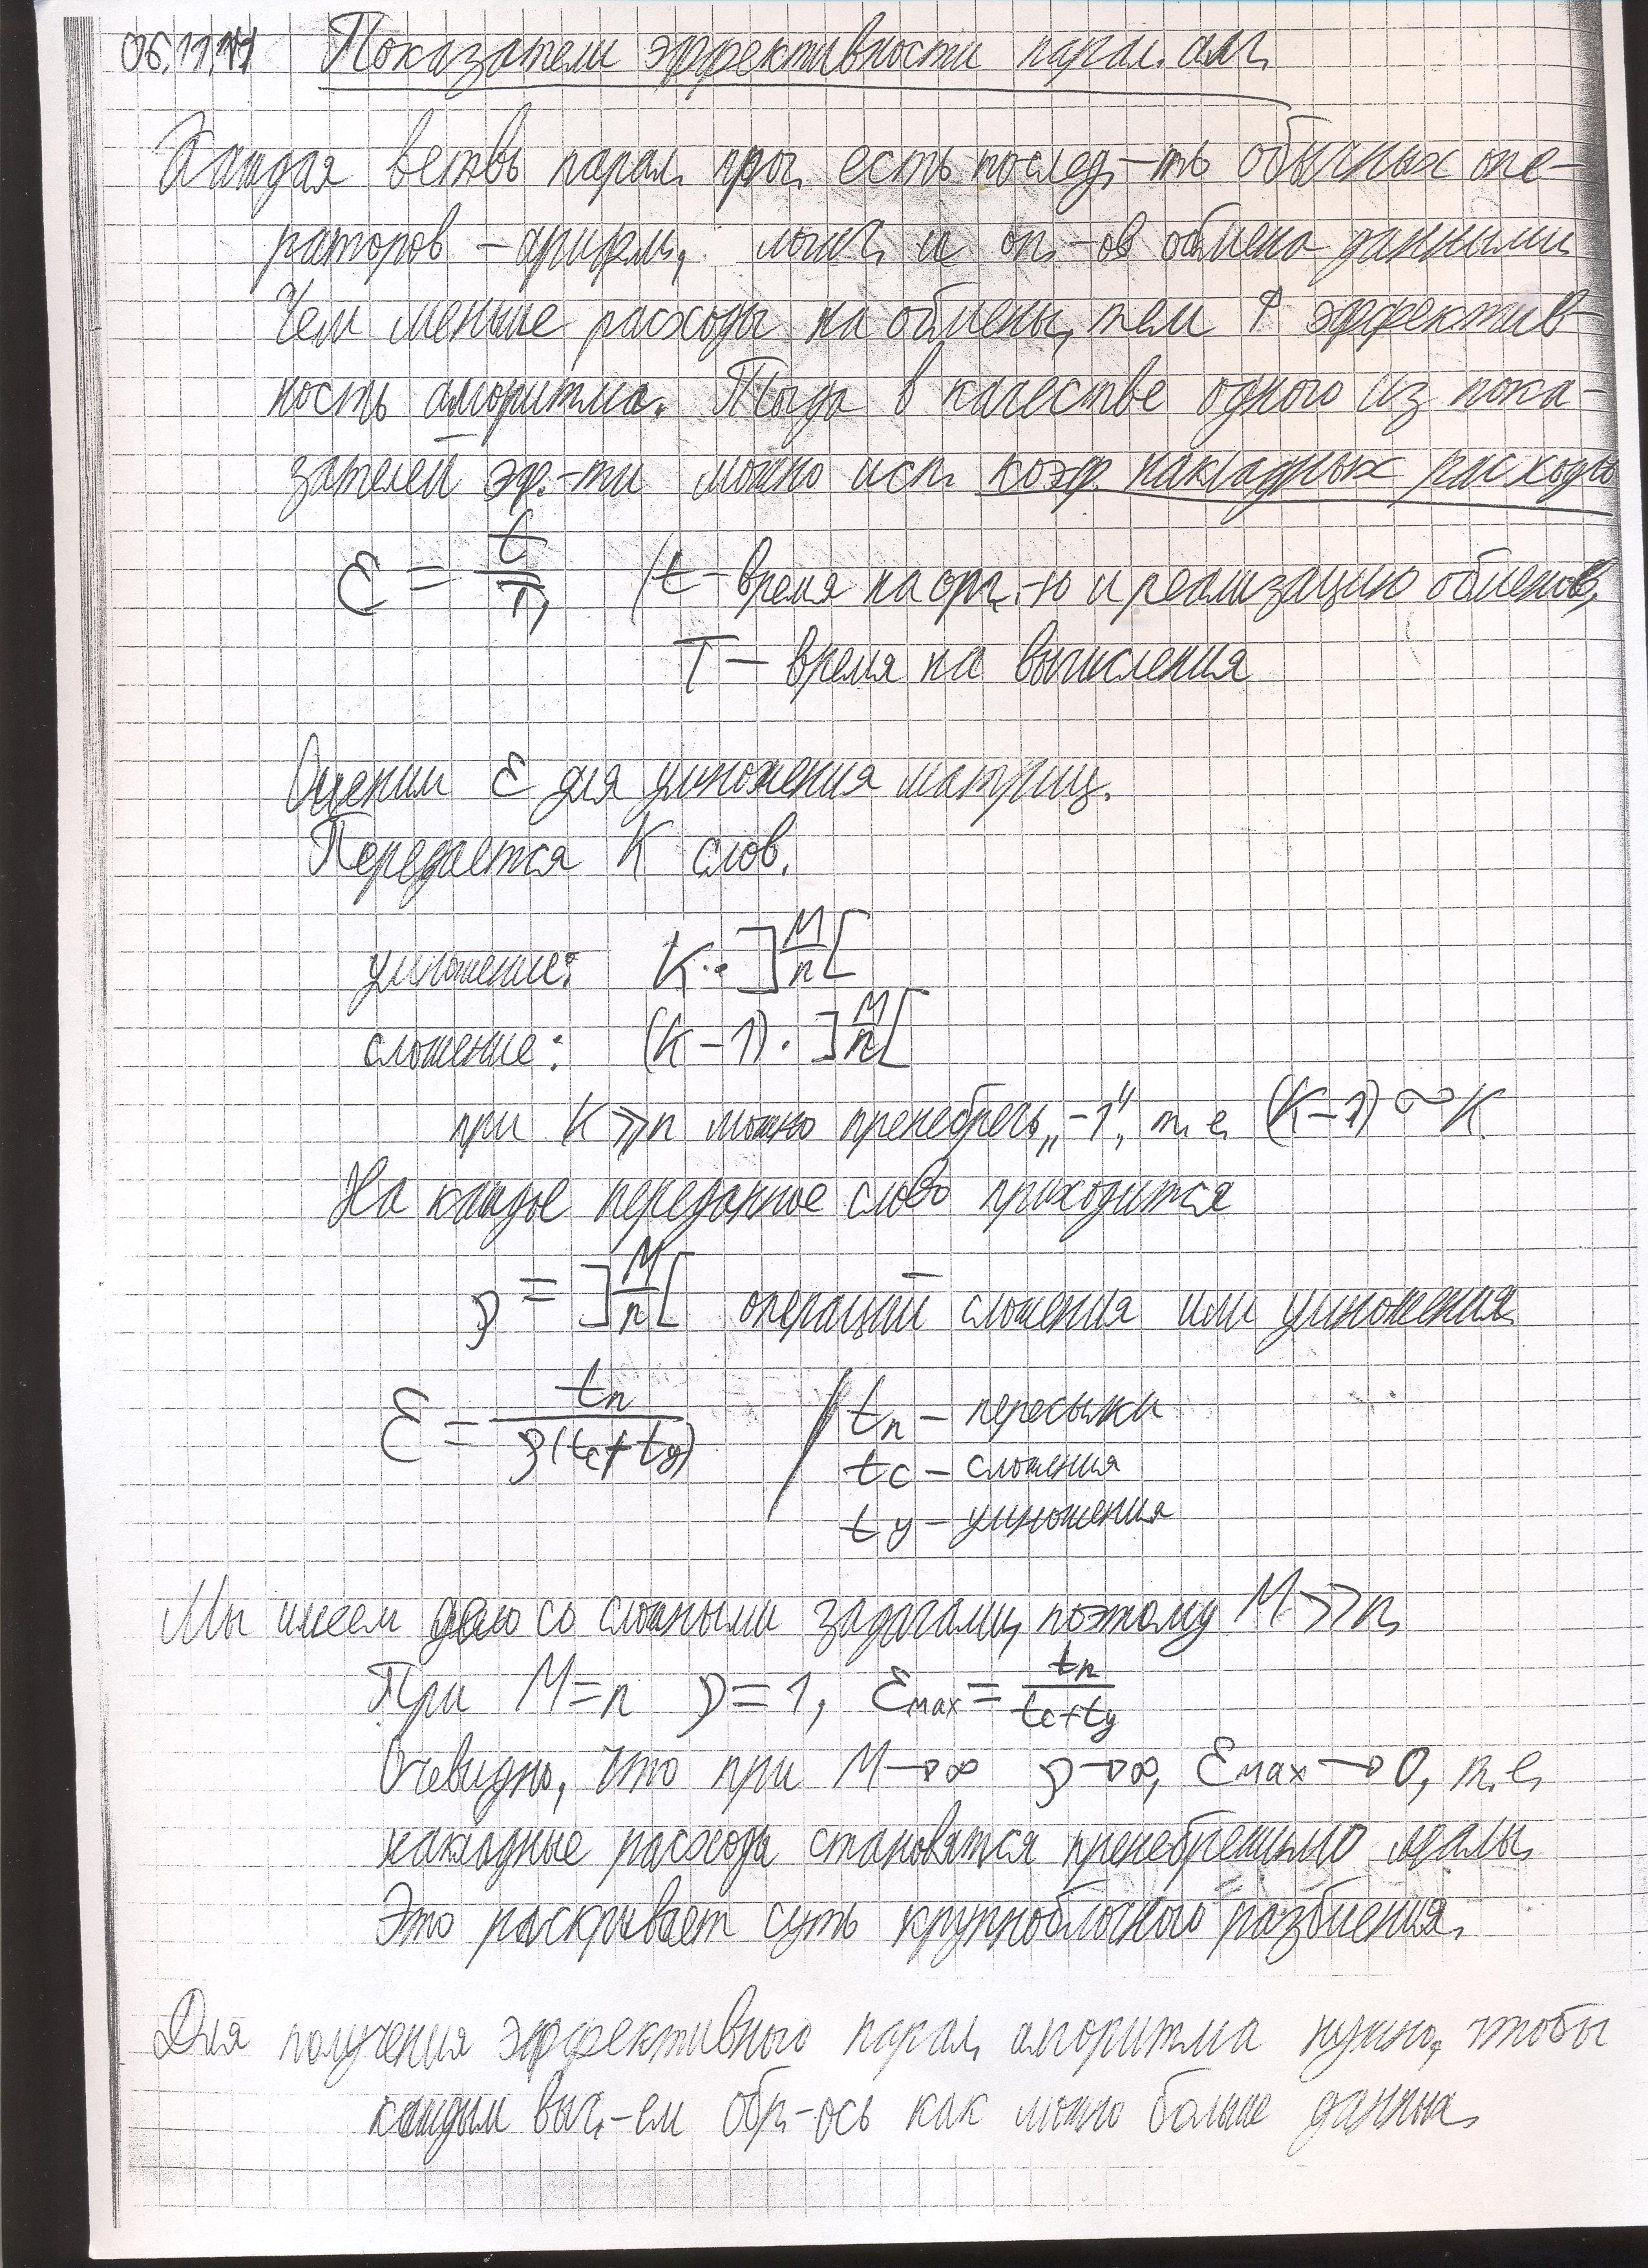 06.11.11 Показатели эффективности парал. алг.
Каждая ветвь парал. прог. есть послед-ть обычных опе-
раторов – арифм., логич. и оп.-ов обмена данными.
Чем меньше расходы на обмены, тем ↑ эффектив-
ность алгоритма. Тогда в качестве одного из пока-
зателей эф.-ти можно исп. коэф. накладных расходов
ε = t/T, / t – время на орг.-ю и реализацию обменов,
T – время на вычисления
Оценим ε для умножения матриц.
Передается K слов.
умножение: K · ]M/n[
сложение: (K-1) · ]M/n[
при K ≫ n можно пренебречь „-1“, т.е. (K-1) ∾ K.
На каждое переданное слово приходится
ρ = ]M/n[ операций сложения или умножения
ε = tп/ρ(tс+tу) / tп – пересылки
tс – сложения
tу – умножения
Мы имеем дело со сложными задачами, поэтому M ≫ n.
При M = n ρ = 1, εmax = tп/tс+tу
Очевидно, что при M → ∞ ρ → ∞, εmax → 0, т.е.
накладные расходы становятся пренебрежимо малы.
Это раскрывает суть крупноблочного разбиения.
Для получения эффективного парал. алгоритма нужно, чтобы
каждым выч.-ем обр-ось как можно больше данных.